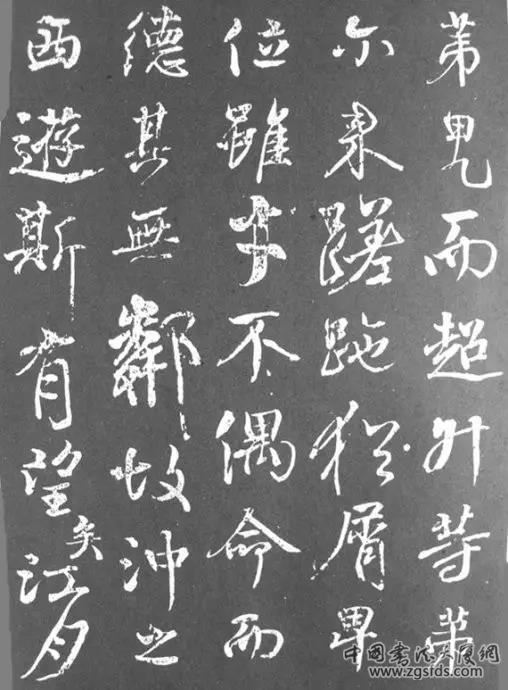 苐見而超升等苐
尒來蹉跎猶屑卑
位雖才不偶命而
德其無鄰故沖之
西遊斯有望矣江月
中國書法大廈網
www.zgsfds.com